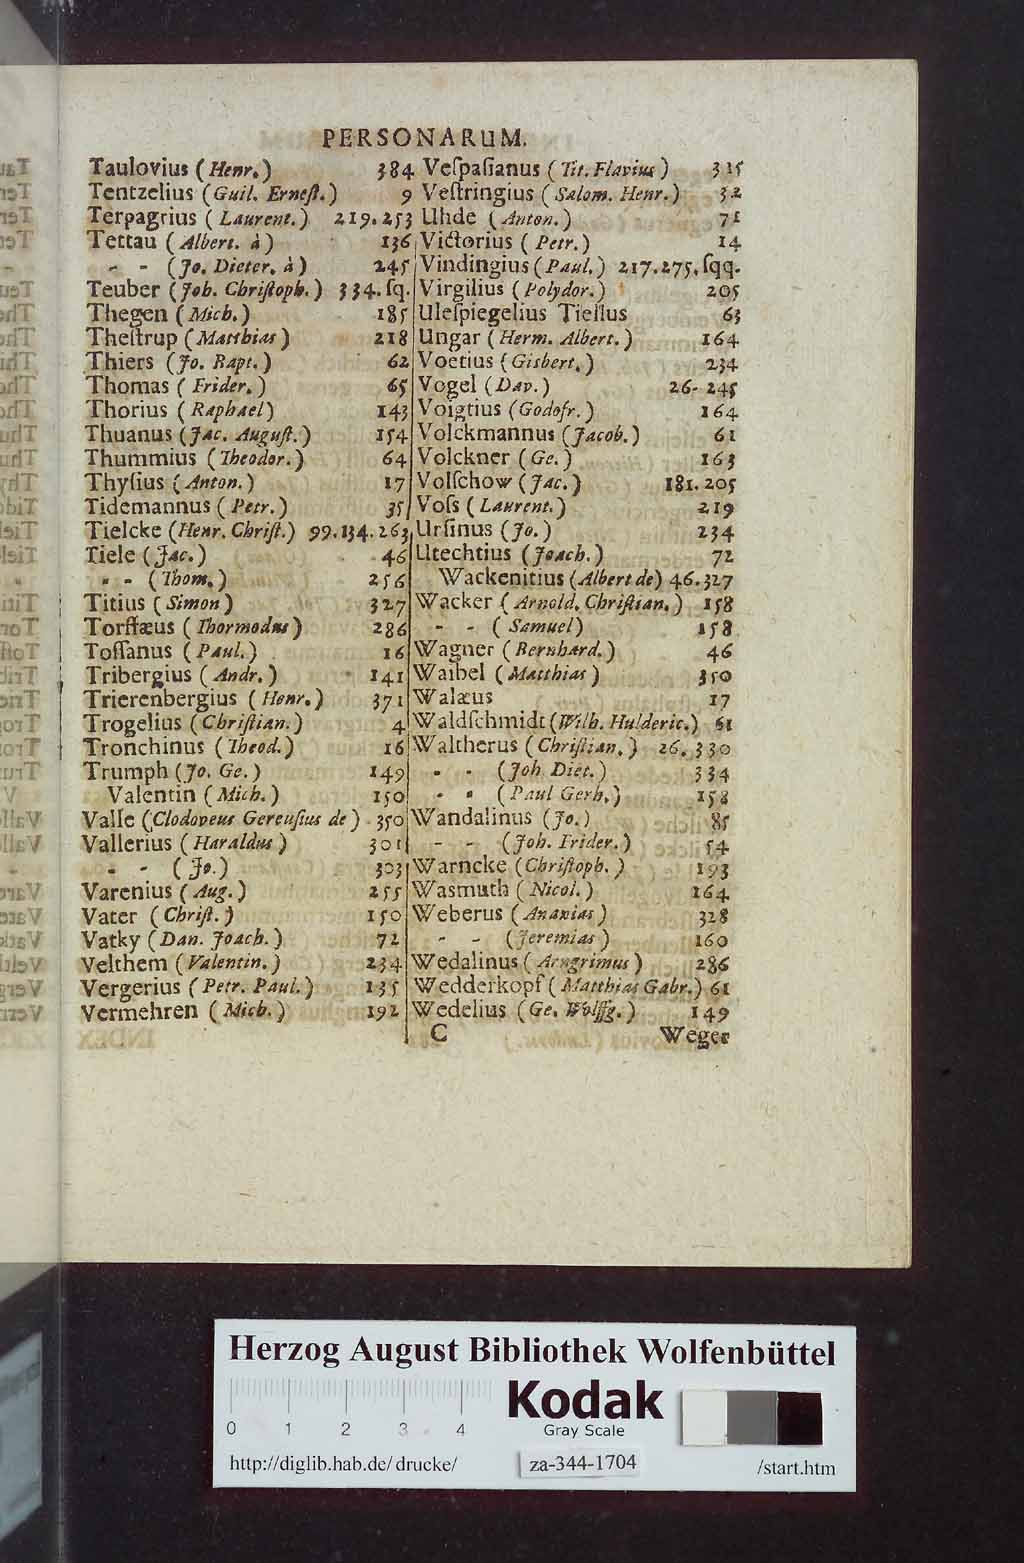 PERSONARUM.
Taulovius (Henr.) 384
Tentzelius (Guil. Erneſt.) 9
Terpagrius (Laurent.) 219.253
Tettau (Albert. à) 136
- - (Jo. Dieter. à) 245
Teuber (Joh. Chriſtoph.) 334.ſq.
Thegen (Mich.) 185
Theſtrup (Matthias) 218
Thiers (Jo. Bapt.) 62
Thomas (Frider.) 65
Thorius (Raphael) 143
Thuanus (Jac. Auguſt.) 154
Thummius (Theodor.) 64
Thyſius (Anton.) 17
Tidemannus (Petr.) 35
Tielcke (Henr. Chriſt.) 99.134.263
Tiele (Jac.) 46
- - (Thom.) 256
Titius (Simon) 327
Torffæus (Thormodus) 286
Toſſanus (Paul.) 16
Tribergius (Andr.) 141
Trierenbergius (Henr.) 371
Trogelius (Chriſtian.) 4
Tronchinus (Theod.) 16
Trumph (Jo. Ge.) 149
Valentin (Mich.) 150
Valle (Clodoveus Gereuſius de) 350
Vallerius (Haraldus) 301
- - (Jo.) 303
Varenius (Aug.) 255
Vater (Chriſt.) 150
Vatky (Dan. Joach.) 72
Velthem (Valentin.) 234
Vergerius (Petr. Paul.) 135
Vermehren (Mich.) 192
Veſpaſianus (Tit. Flavius) 325
Veſtringius (Salom. Henr.) 32
Uhde (Anton.) 71
Victorius (Petr.) 14
Vindingius (Paul.) 217.275.ſqq.
Virgilius (Polydor.) 205
Uleſpiegelius Tiellus 63
Ungar (Herm. Albert.) 164
Voetius (Gisbert.) 234
Vogel (Dav.) 26. 245
Voigtius (Godofr.) 164
Volckmannus (Jacob.) 61
Volckner (Ge.) 163
Volſchow (Jac.) 181.205
Voſs (Laurent.) 219
Urſinus (Jo.) 234
Utechtius (Joach.) 72
Wackenitius (Albert de) 46.327
Wacker (Arnold. Chriſtian.) 158
- - (Samuel) 158
Wagner (Bernhard.) 46
Waibel (Matthias) 350
Walæus 17
Waldſchmidt (Wilh. Hulderic.) 61
Waltherus (Chriſtian.) 26. 330
- - (Joh Diet.) 334
- - (Paul Gerh.) 158
Wandalinus (Jo.) 85
- - (Joh. Frider.) 54
Warncke (Chriſtoph.) 193
Wasmuth (Nicol.) 164
Weberus (Ananias) 328
- - (Jeremias) 160
Wedalinus (Arngrimus) 286
Wedderkopf (Matthias Gabr.) 61
Wedelius (Ge. Wolffg.) 149
C Weger
Herzog August Bibliothek Wolfenbüttel
0 1 2 3 4
Kodak
Gray Scale
http://diglib.hab.de/drucke/ za-344-1704 /start.htm